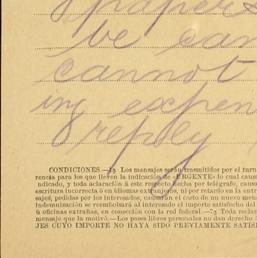 papers
be can
cannot
ing expen
reply
CONDICIONES.—1ª Los mensajes serán transmitidos por el turn
rencia para los que lleven la indicación de «URGENTE» lo cual caus
indicado, y toda aclaración á este respecto hecha por telégrafo, causa
escritura incorrecta ó en idiomas extranjeros, ni por retardo en la entr
sajes, pedidas por los interesados, causarán el costo de un mensaje de
indemnización se reembolsará al interesado el importe satisfecho del
ú oficinas extrañas, en conección con la red federal.—7ª Toda reclam
mensaje que la motivó.—Los pases libres personales no dan derecho á
JES CUYO IMPORTE NO HAYA SIDO PREVIAMENTE SATISF